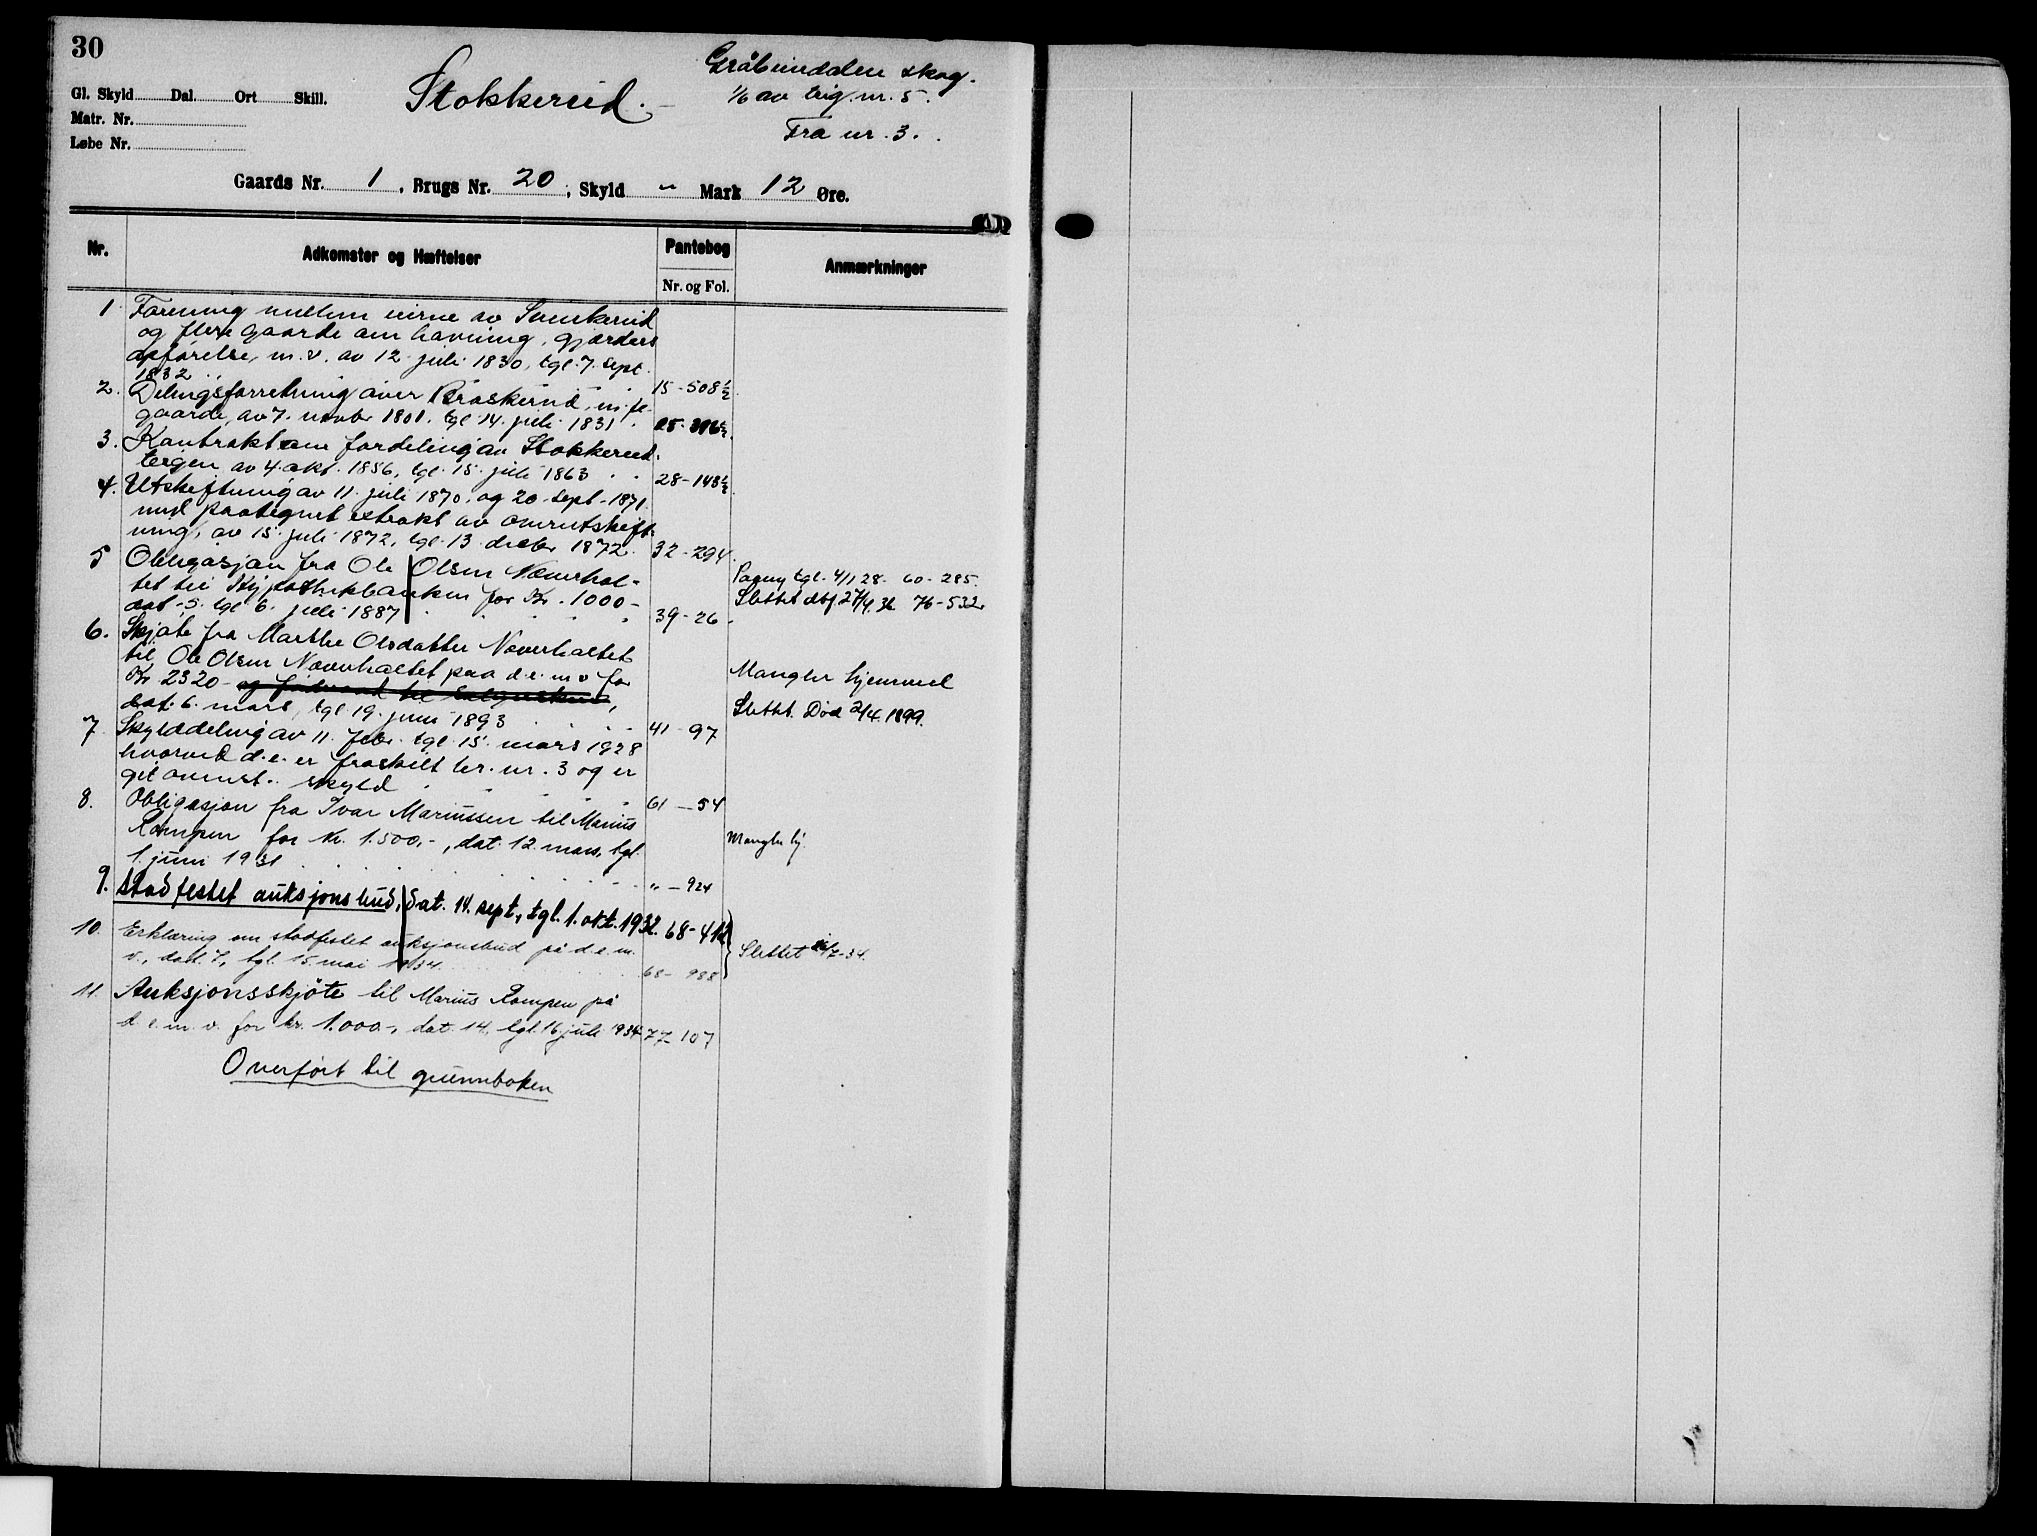 30
Gl. Skyld Dal. Ort Skill.
Matr. Nr.
Løbe Nr.
Stokkerud.
skog.
1/6 av teig nr. 5.
Fra nr. 3.
Gaards Nr. 1, Brugs Nr. 20, Skyld " Mark 12 Øre.
Nr. Adkomster og Hæftelser Pantebog Anmærkninger
Nr. og Fol.
1 Forening mellem eierne av Svenkerud
og flere gaarde om havning, gjærders
opførelse, m.v. av 12. juli 1830, tgl. 7. sept.
1832
15-508½
2. Delingsforretning over Braskerud, m. fl.
gaarde, av 7. novbr 1801. tgl. 14. juli 1831.
3. Kontrakt om fordeling av Stokkerud-
teigen, av 4. okt. 1856, tgl. 15. juli 1863
28-148½
4. Utskiftning av 11. juli 1870, og 20. sept. 1871
med paategnet extrakt av omutskift-
ning, av 15. juli 1872, tgl. 13. decbr 1872.
32-294.
5 Obligasjon fra Ole Olsen Næverhol-
tet til Hypothekbanken for Kr. 1000-
dat. 5. tgl. 6. juli 1887
39-26-
Paany tgl. 4/1 28. 60-285.
Slettet 76-532
6. Skjøte fra Marthe Olsdatter Næverholtet
til Ole Olsen Næverholtet paa d.e.m v for
Kr 2320-
dat. 6. mars, tgl. 19. juni 1893
41-97
Mangler hjemmel
Slettet. Død 2/4. 1899.
7 Skylddeling av 11. febr. tgl. 15. mars 1928
hvorved d.e. er fraskilt br. nr. 3 og er
git skyld
61-54
8. Obligasjon fra Ivar Mariussen til Marius
Rompen for Kr. 1.500,-, dat. 12. mars, tgl.
1. juni 1931
"-924
Mangler hj.
9. Stadfestet auksjonsbud, dat. 14. sept., tgl. 1. okt. 1932. 68-412
10. Erklæring om stadfestet auksjonsbud på d.e.m.
v., dat. 7., tgl. 15. mai 1934
68-988
Slettet
11. Auksjonsskjøte til Marius Rompen på
d.e.m.v. for kr. 1.000-, dat. 14., tgl. 16 juli 1934 77-107
Overført til grunnboken